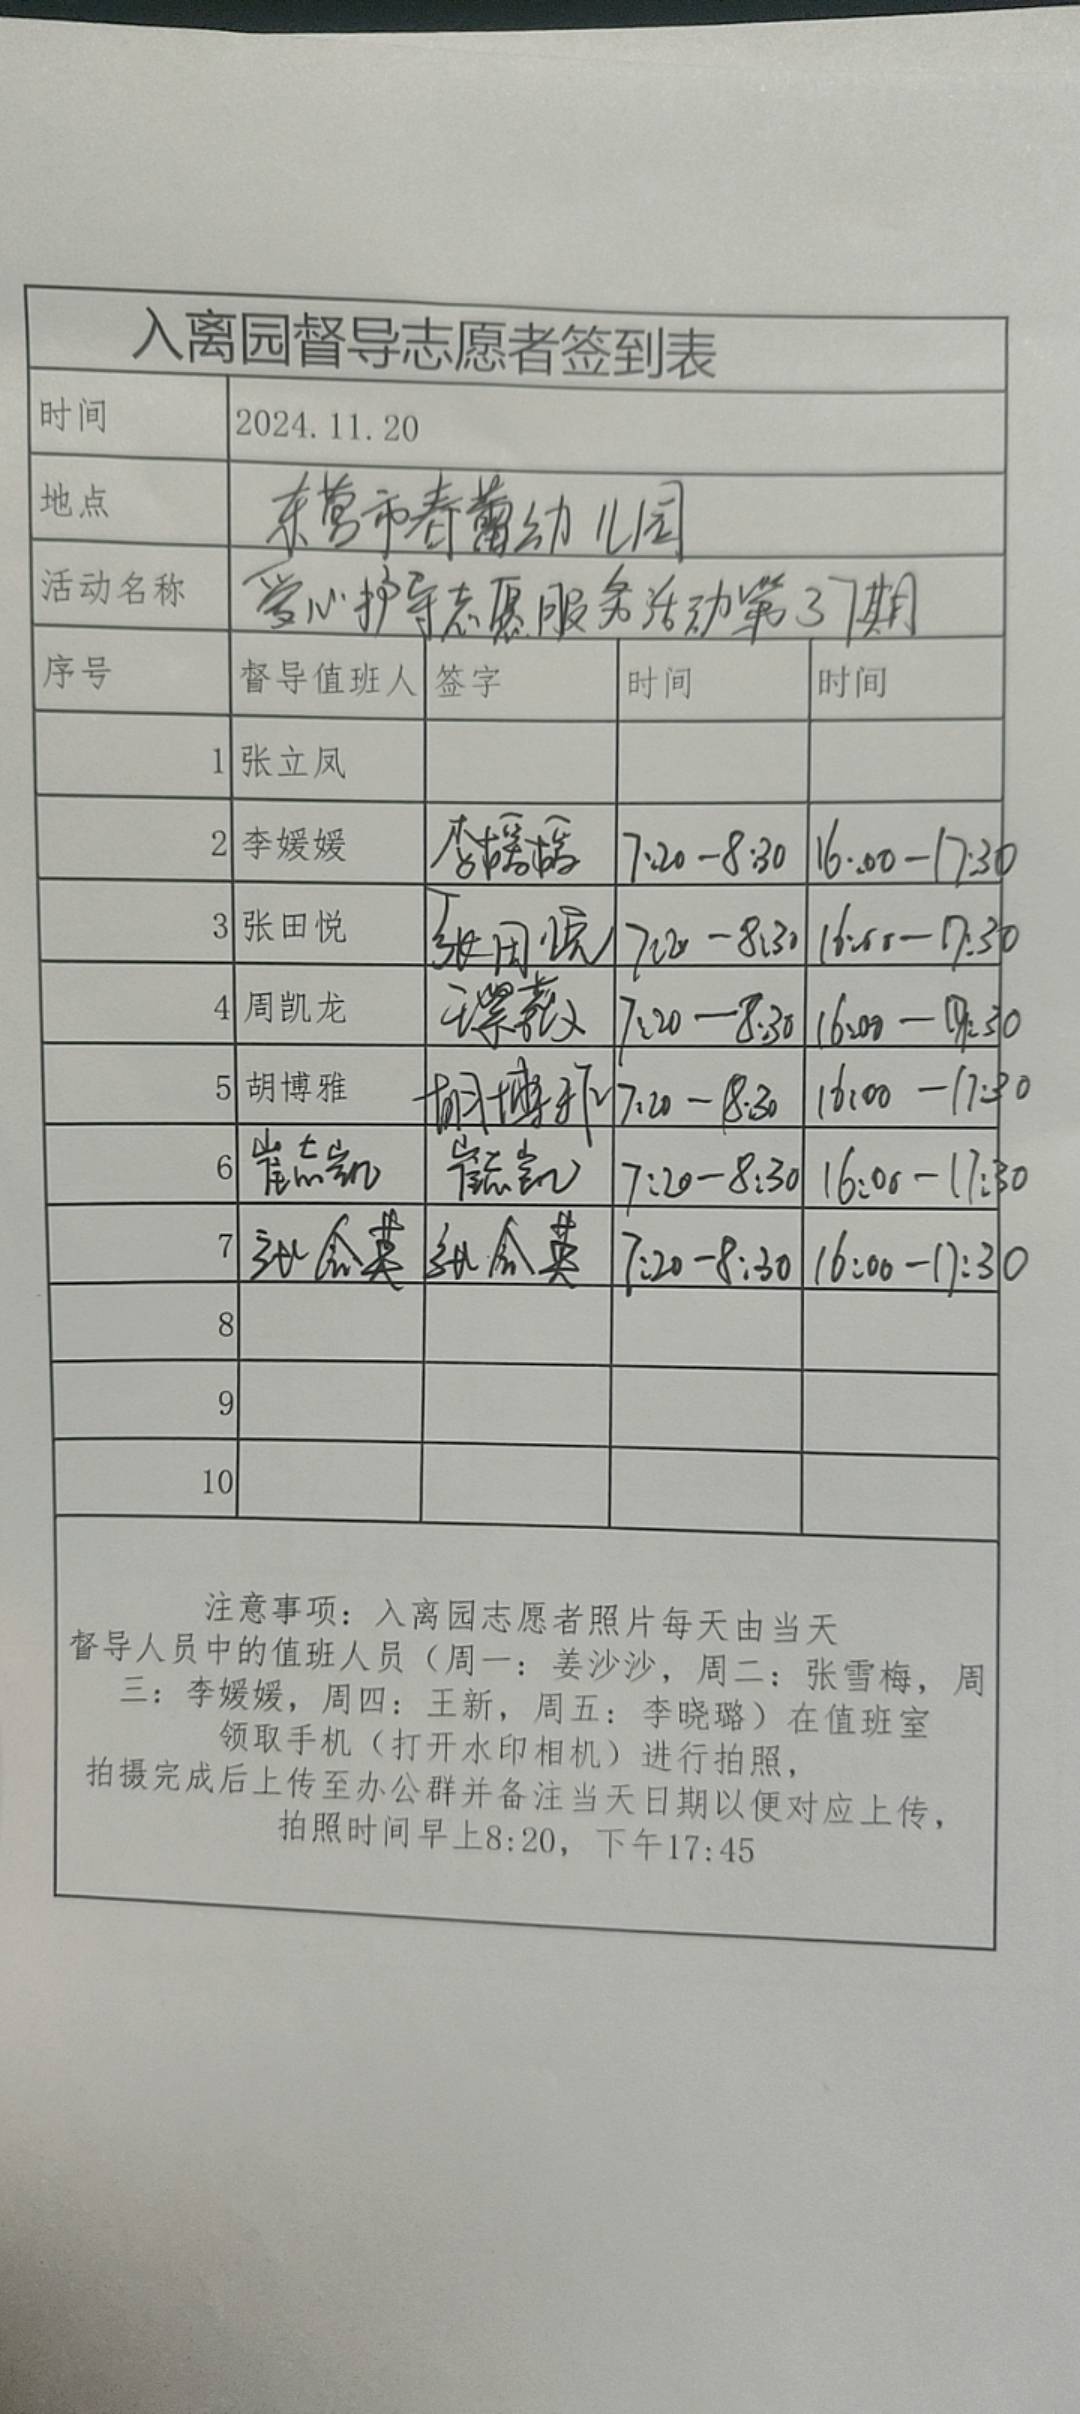 入离园督导志愿者签到表
时间 2024.11.20
地点 东营市春蕾幼儿园
活动名称 爱心护导志愿服务活动第37期
序号 督导值班人 签字 时间 时间
1 张立凤
2 李媛媛 李媛媛 7:20-8:30 16:00-17:30
3 张田悦 张田悦 7:20-8:30 16:00-17:30
4 周凯龙 7:20-8:30 16:00-17:30
5 胡博雅 胡博雅 7:20-8:30 16:00-17:30
6 崔志凯 崔志凯 7:20-8:30 16:00-17:30
7 7:20-8:30 16:00-17:30
8
9
10
注意事项：入离园志愿者照片每天由当天
督导人员中的值班人员（周一：姜沙沙，周二：张雪梅，周
三：李媛媛，周四：王新，周五：李晓璐）在值班室
领取手机（打开水印相机）进行拍照，
拍摄完成后上传至办公群并备注当天日期以便对应上传，
拍照时间早上8:20，下午17:45